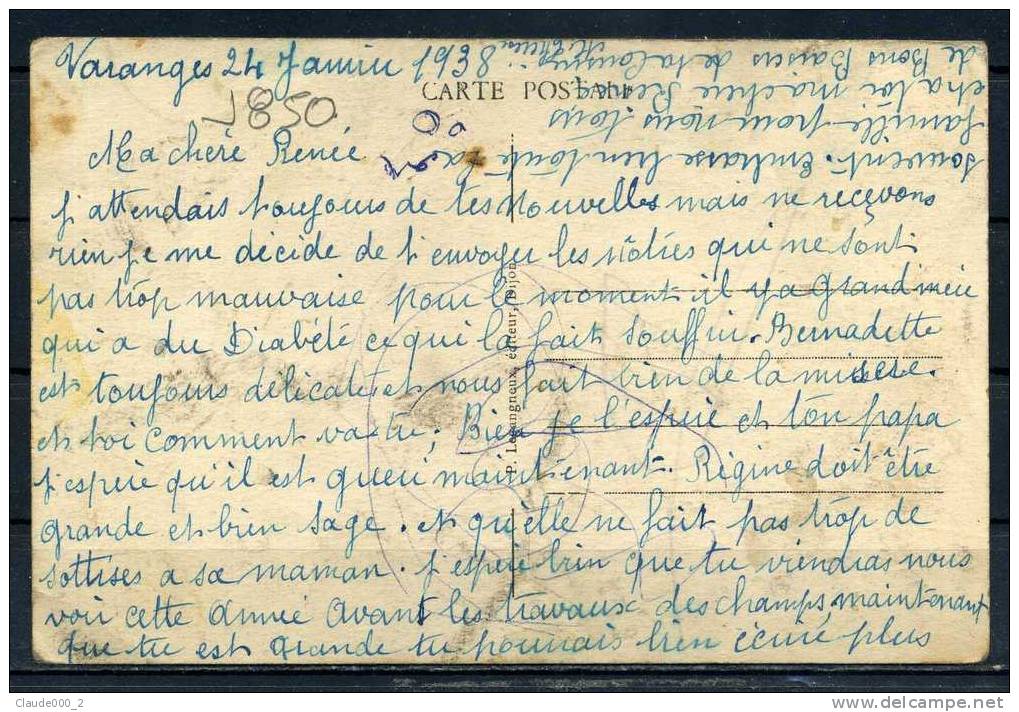 Varanges 24 Janvier 1938
CARTE POSTALE
J850
Ma chère Renée
j'attendais toujours de tes nouvelles mais ne recevons
rien je me décide de t'envoyer les nôtres qui ne sont
pas trop mauvaise pour le moment il y a Grand mère
qui a du Diabété ce qui la fait souffrir. Bernadette
est toujours délicate et nous fait bien de la misère.
et toi comment va-tu, Bien je l'espère et ton papa
j'espère qu'il est guéri maintenant. Régine doit être
grande et bien sage. et qu'elle ne fait pas trop de
sottises a sa maman. j'espère bien que tu viendras nous
voir cette année avant les travaux des champs, maintenant
que tu est grande tu pourrais bien écrire plus
souvent. Embrasse bien toute ta
famille pour nous tous
et a toi ma chère Renée
de Bons Baisers de ta cousine
P. Lesangneux, éditeur, Dijon
Claude000_2
www.delcampe.net